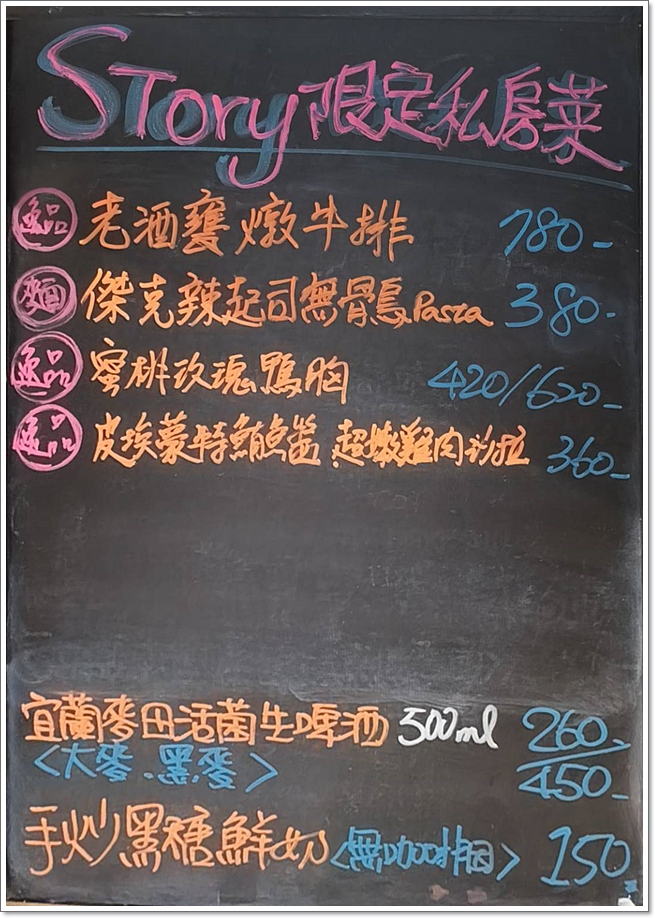 Story 限定私房菜
逸品 老酒甕燉牛排 780-
麵 傑克辣起司無骨鳥Pasta 380-
逸品 蜜桃玫瑰鴨胸 420/620-
逸品 皮埃蒙特鮪魚醬 超嫩雞肉沙拉 360-
宜蘭麥田活菌生啤酒 500ml 260-
<大麥、黑麥> 450-
手炒黑糖鮮奶<無咖啡因> 150